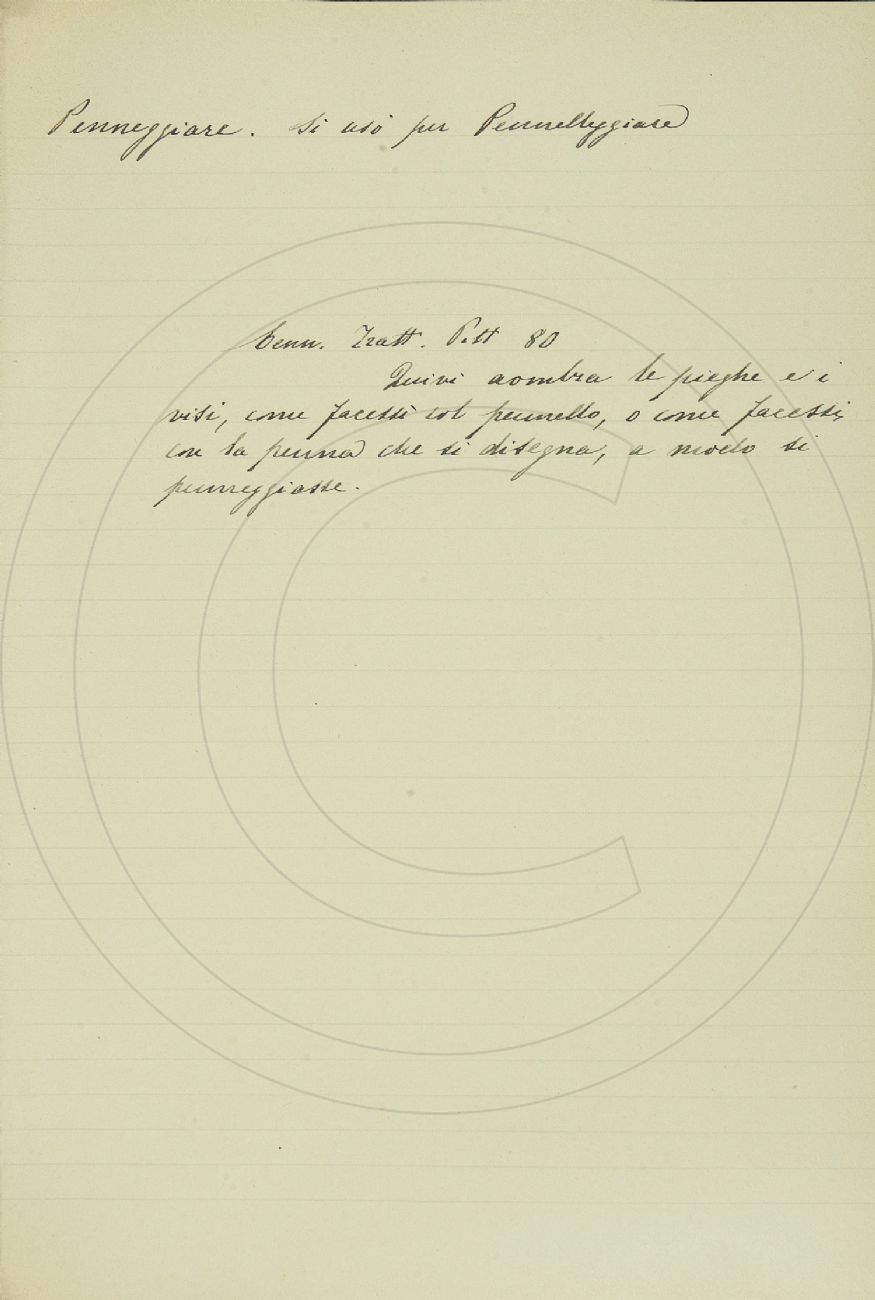 Penneggiare. Si usò per Pennelleggiare
Cenn. Tratt. Pitt 80
Quivi aombra le pieghe e i
visi, come facessi col pennello, o come facessi
con la penna che si disegna, a modo si
penneggiasse.